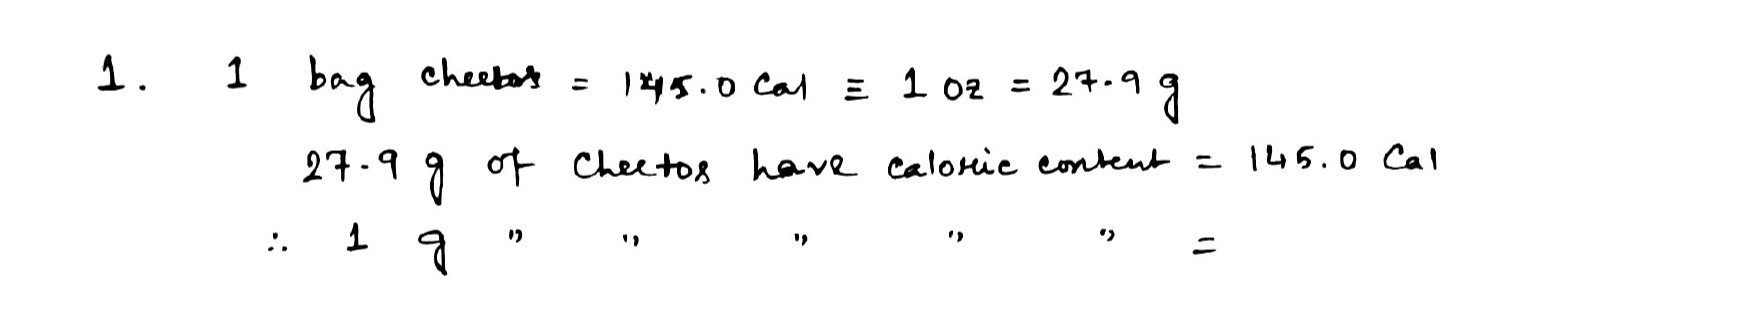 1. 1 bag cheetos = 145.0 Cal ≡ 1 oz = 27.9 g
27.9 g of Cheetos have caloric content = 145.0 Cal
∴ 1 g " " " " " =